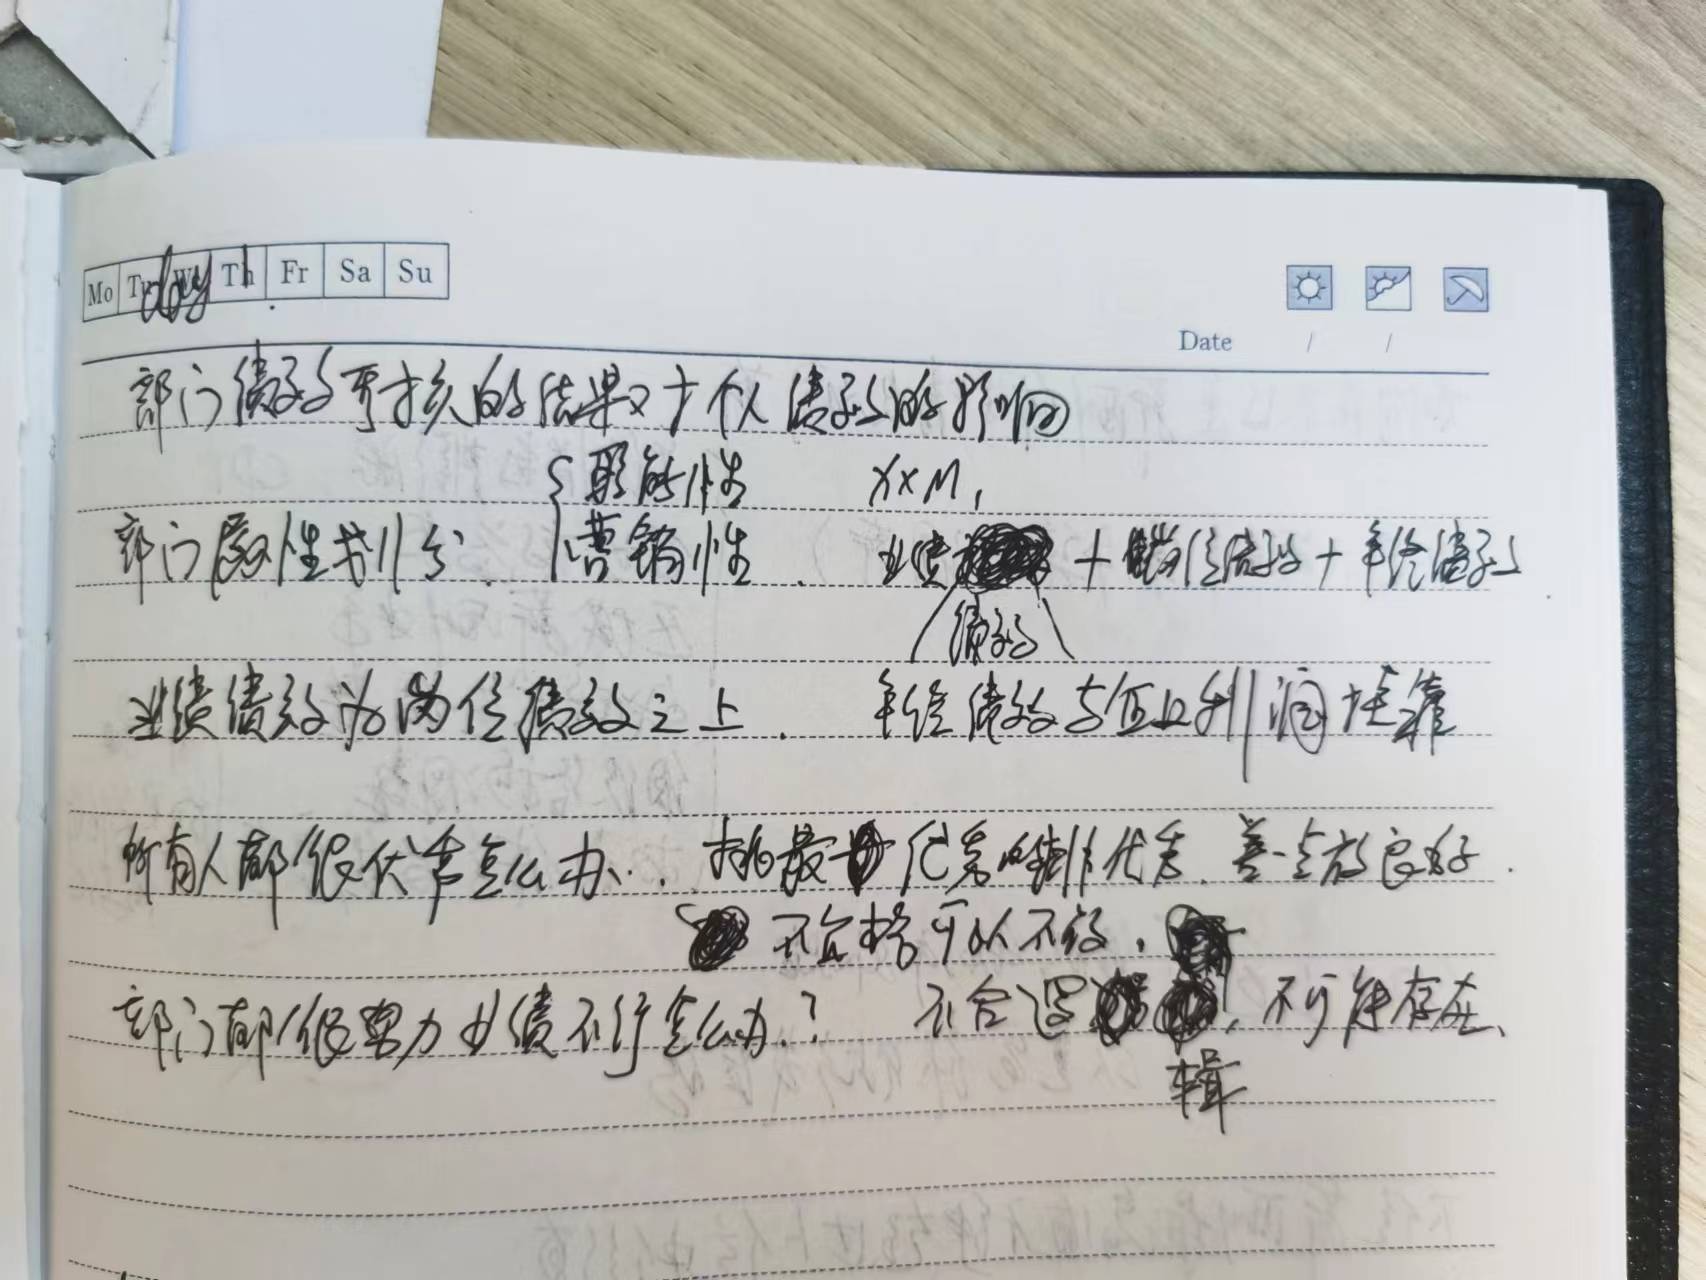 Mo Tu We Th Fr Sa Su
day
Date / /
部门绩效考核的结果对个人绩效的影响
{ 职能性 X×M,
部门属性划分. 营销性. 业绩 + 岗位绩效 + 年终绩效
绩效
业绩绩效为岗位绩效之上. 年终绩效与企业利润挂靠
所有人都很优秀怎么办. 挑最优秀的排优秀. 差一点放良好.
不合格可以不设.
部门都很努力业绩不行怎么办? 不合逻, 不可能存在、
辑